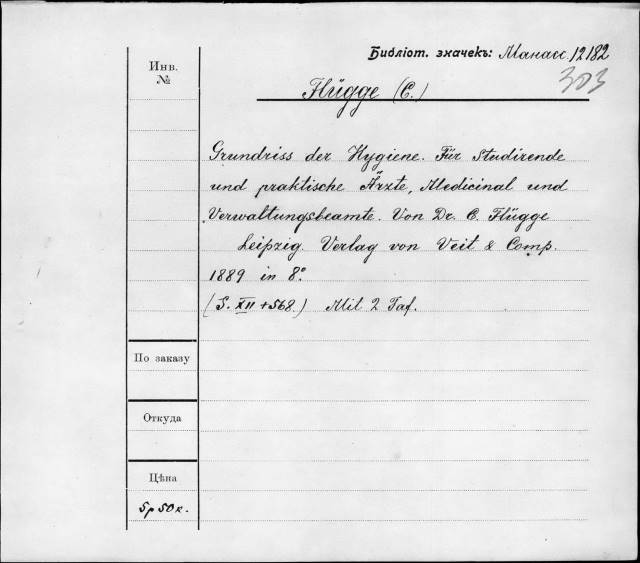 Библіот. значекъ: Манасс. 12182
303
Инв.
№
Flügge (C.)
Grundriss der Hygiene. Für Studirende
und praktische Ärzte, Medicinal und
Verwaltungsbeamte. Von Dr. C. Flügge
Leipzig. Verlag von Veit & Comp.
1889 in 8º
(S. XII + 568.) Mit 2 Taf.
По заказу
Откуда
Цѣна
5р 50к.